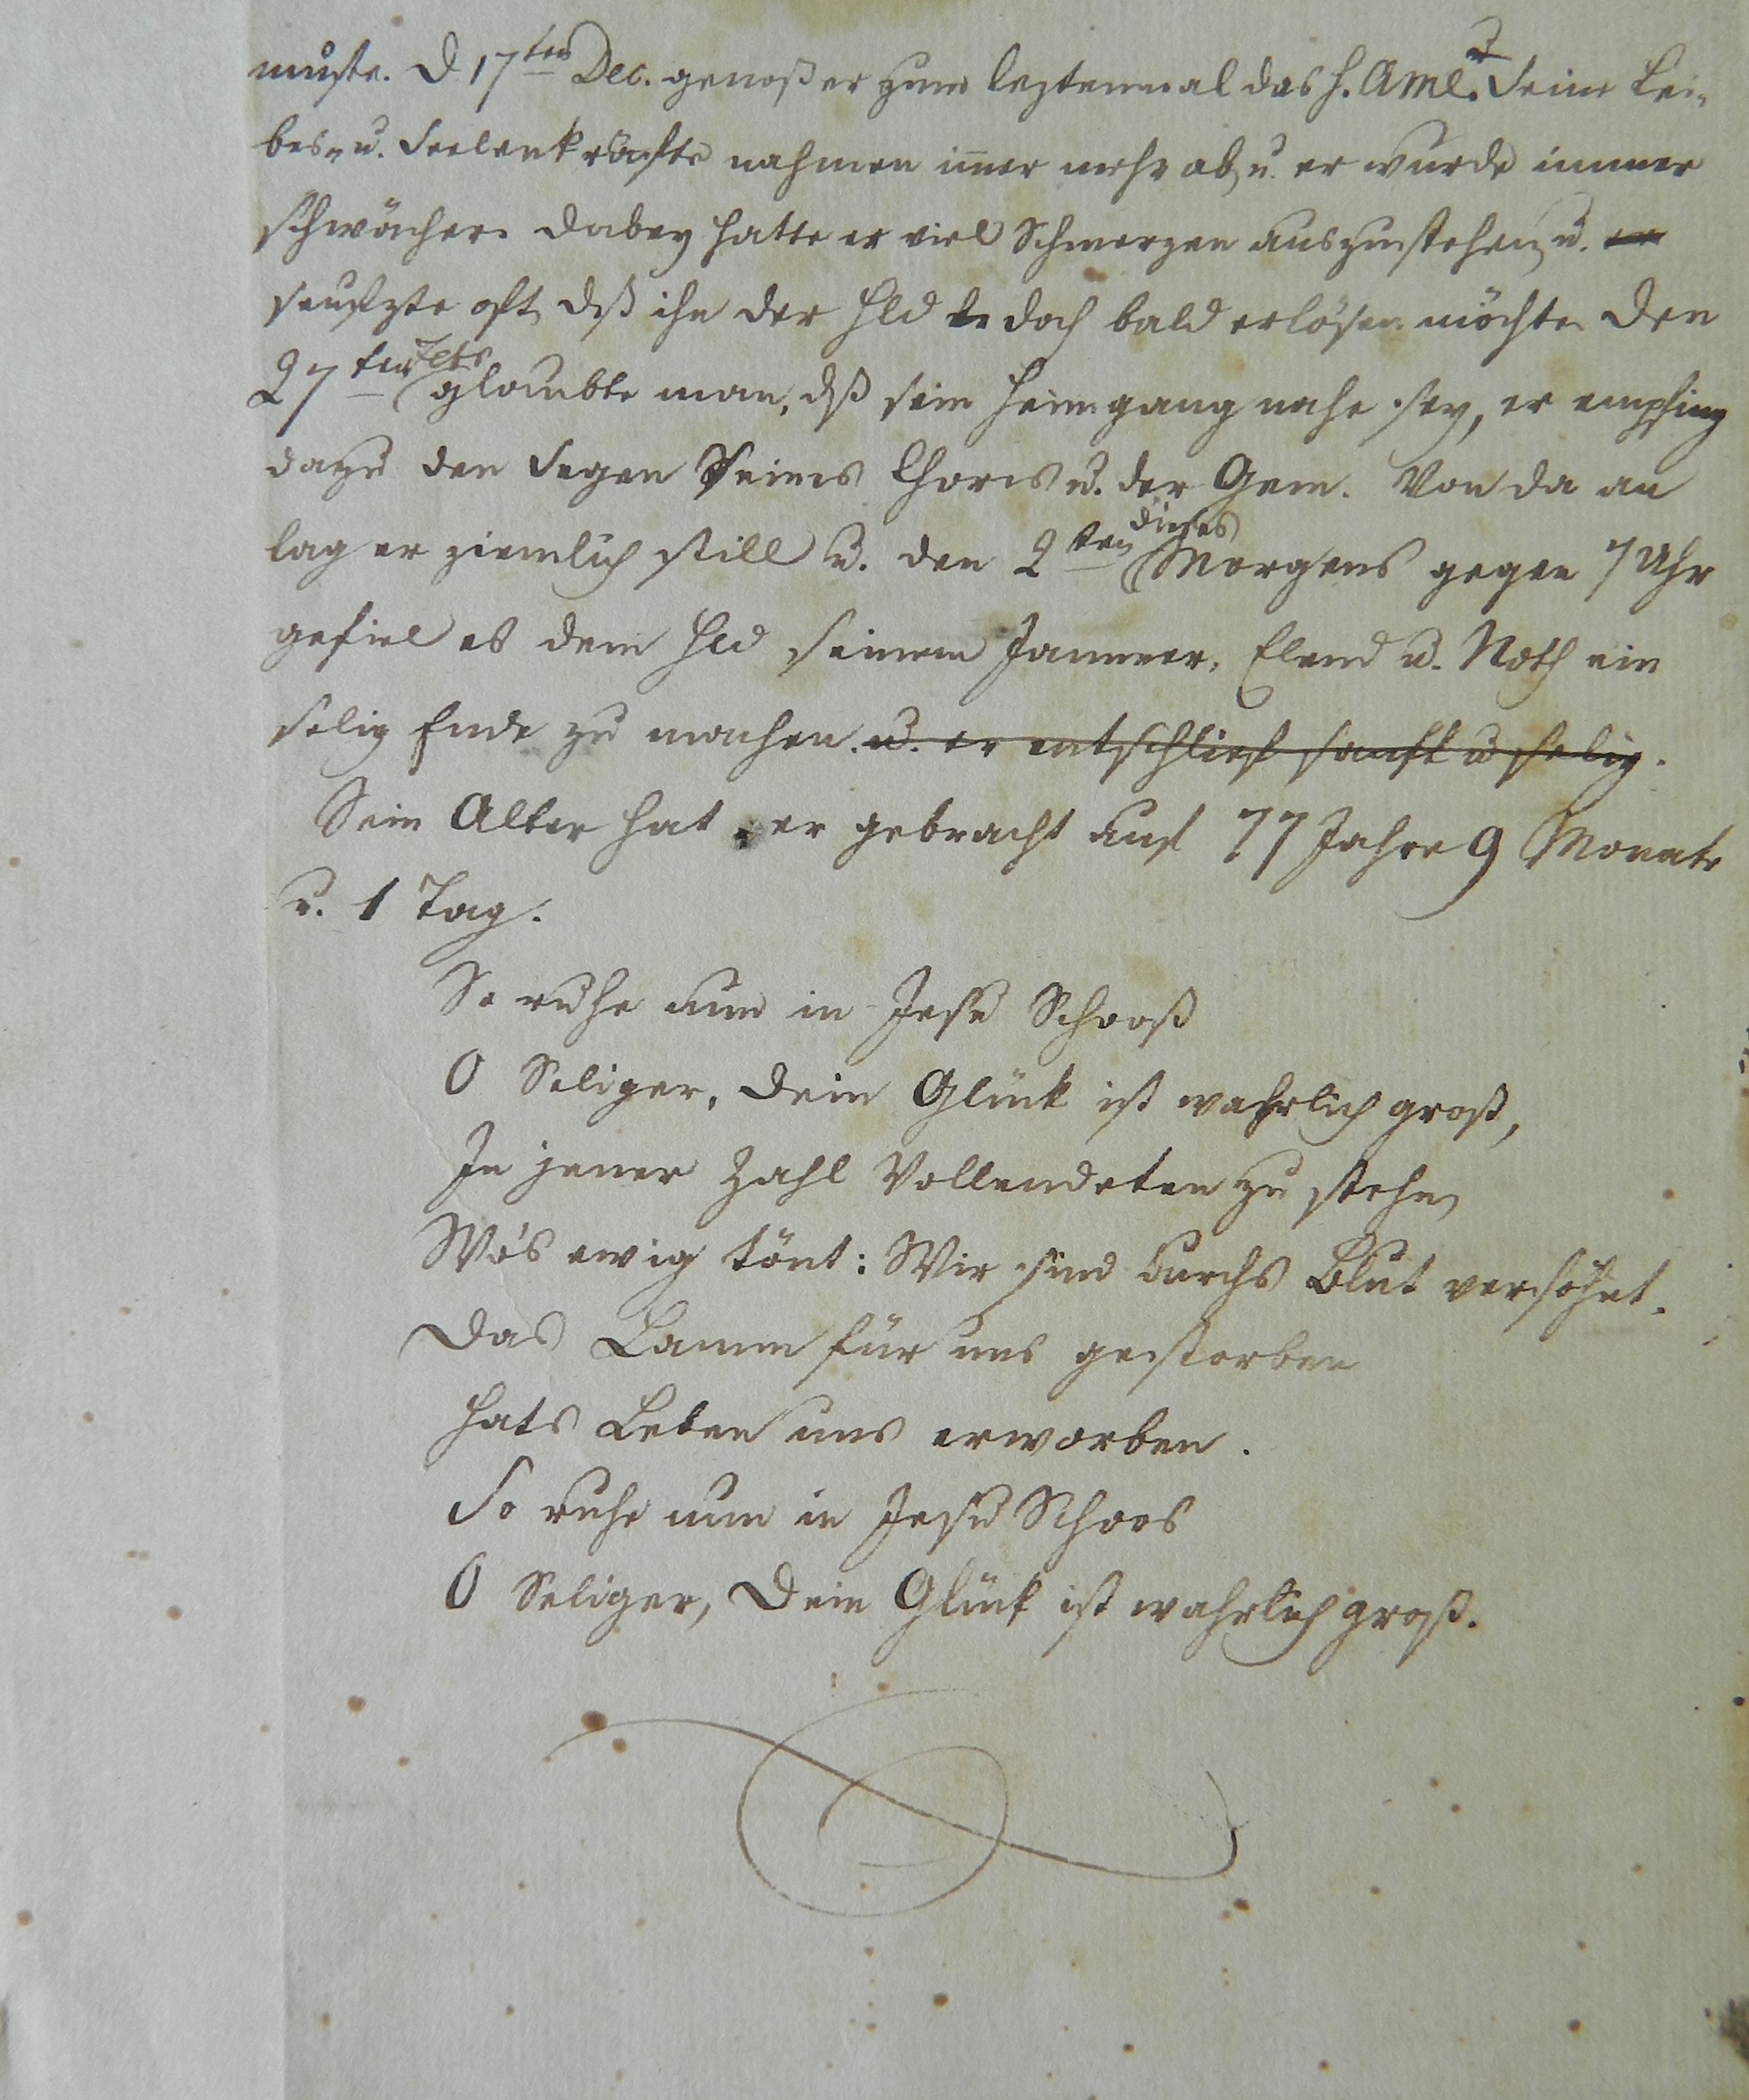 muste. D 17ten Dec. genoß er zum leztenmal das h. AMl. Seine Lei-
bes- u. Seelenkräfte nahmen im̄er mehr ab, u. er wurde immer
schwächer. Dabey hatte er viel Schmerzen auszustehen, u. er
seufzte oft, dß ihn der Hld doch bald erlösen möchte. Den
27ten glaubte man, dß sein Heimgang nahe sey, er empfing
dazu den Segen Seines Chores u. der Gem. Von da an
lag er ziemlich still u. den 2ten dieses Morgens gegen 7 Uhr
gefiel es dem Hld seinem Jammer, Elend u. Noth ein
selig Ende zu machen. u. er entschlief sanft u selig.
Sein Alter hat er gebracht auf 77 Jahre 9 Monate
u. 1 Tag.
So ruhe nun in Jesu Schooß
O Seliger, Dein Glück ist wahrlich groß,
In jener Zahl Vollendeten zu stehn,
Wo's ewig tönt: Wir sind durchs Blut versöhnt.
Das Lamm für uns gestorben
hats Leben uns erworben.
So ruhe nun in Jesu Schoos
O Seliger, Dein Glück ist wahrlich groß.